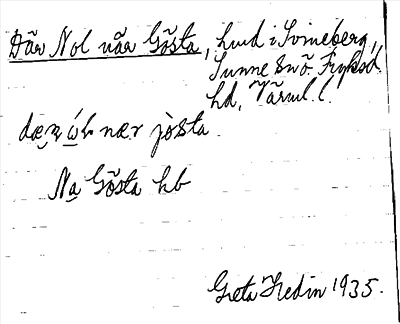 Där Nol när Gösta, hmd i Svineberg,
Sunne snö. Fryksd.
hd, Värml. l.
nær jösta
Na Gösta hb
Greta Hedin 1935.